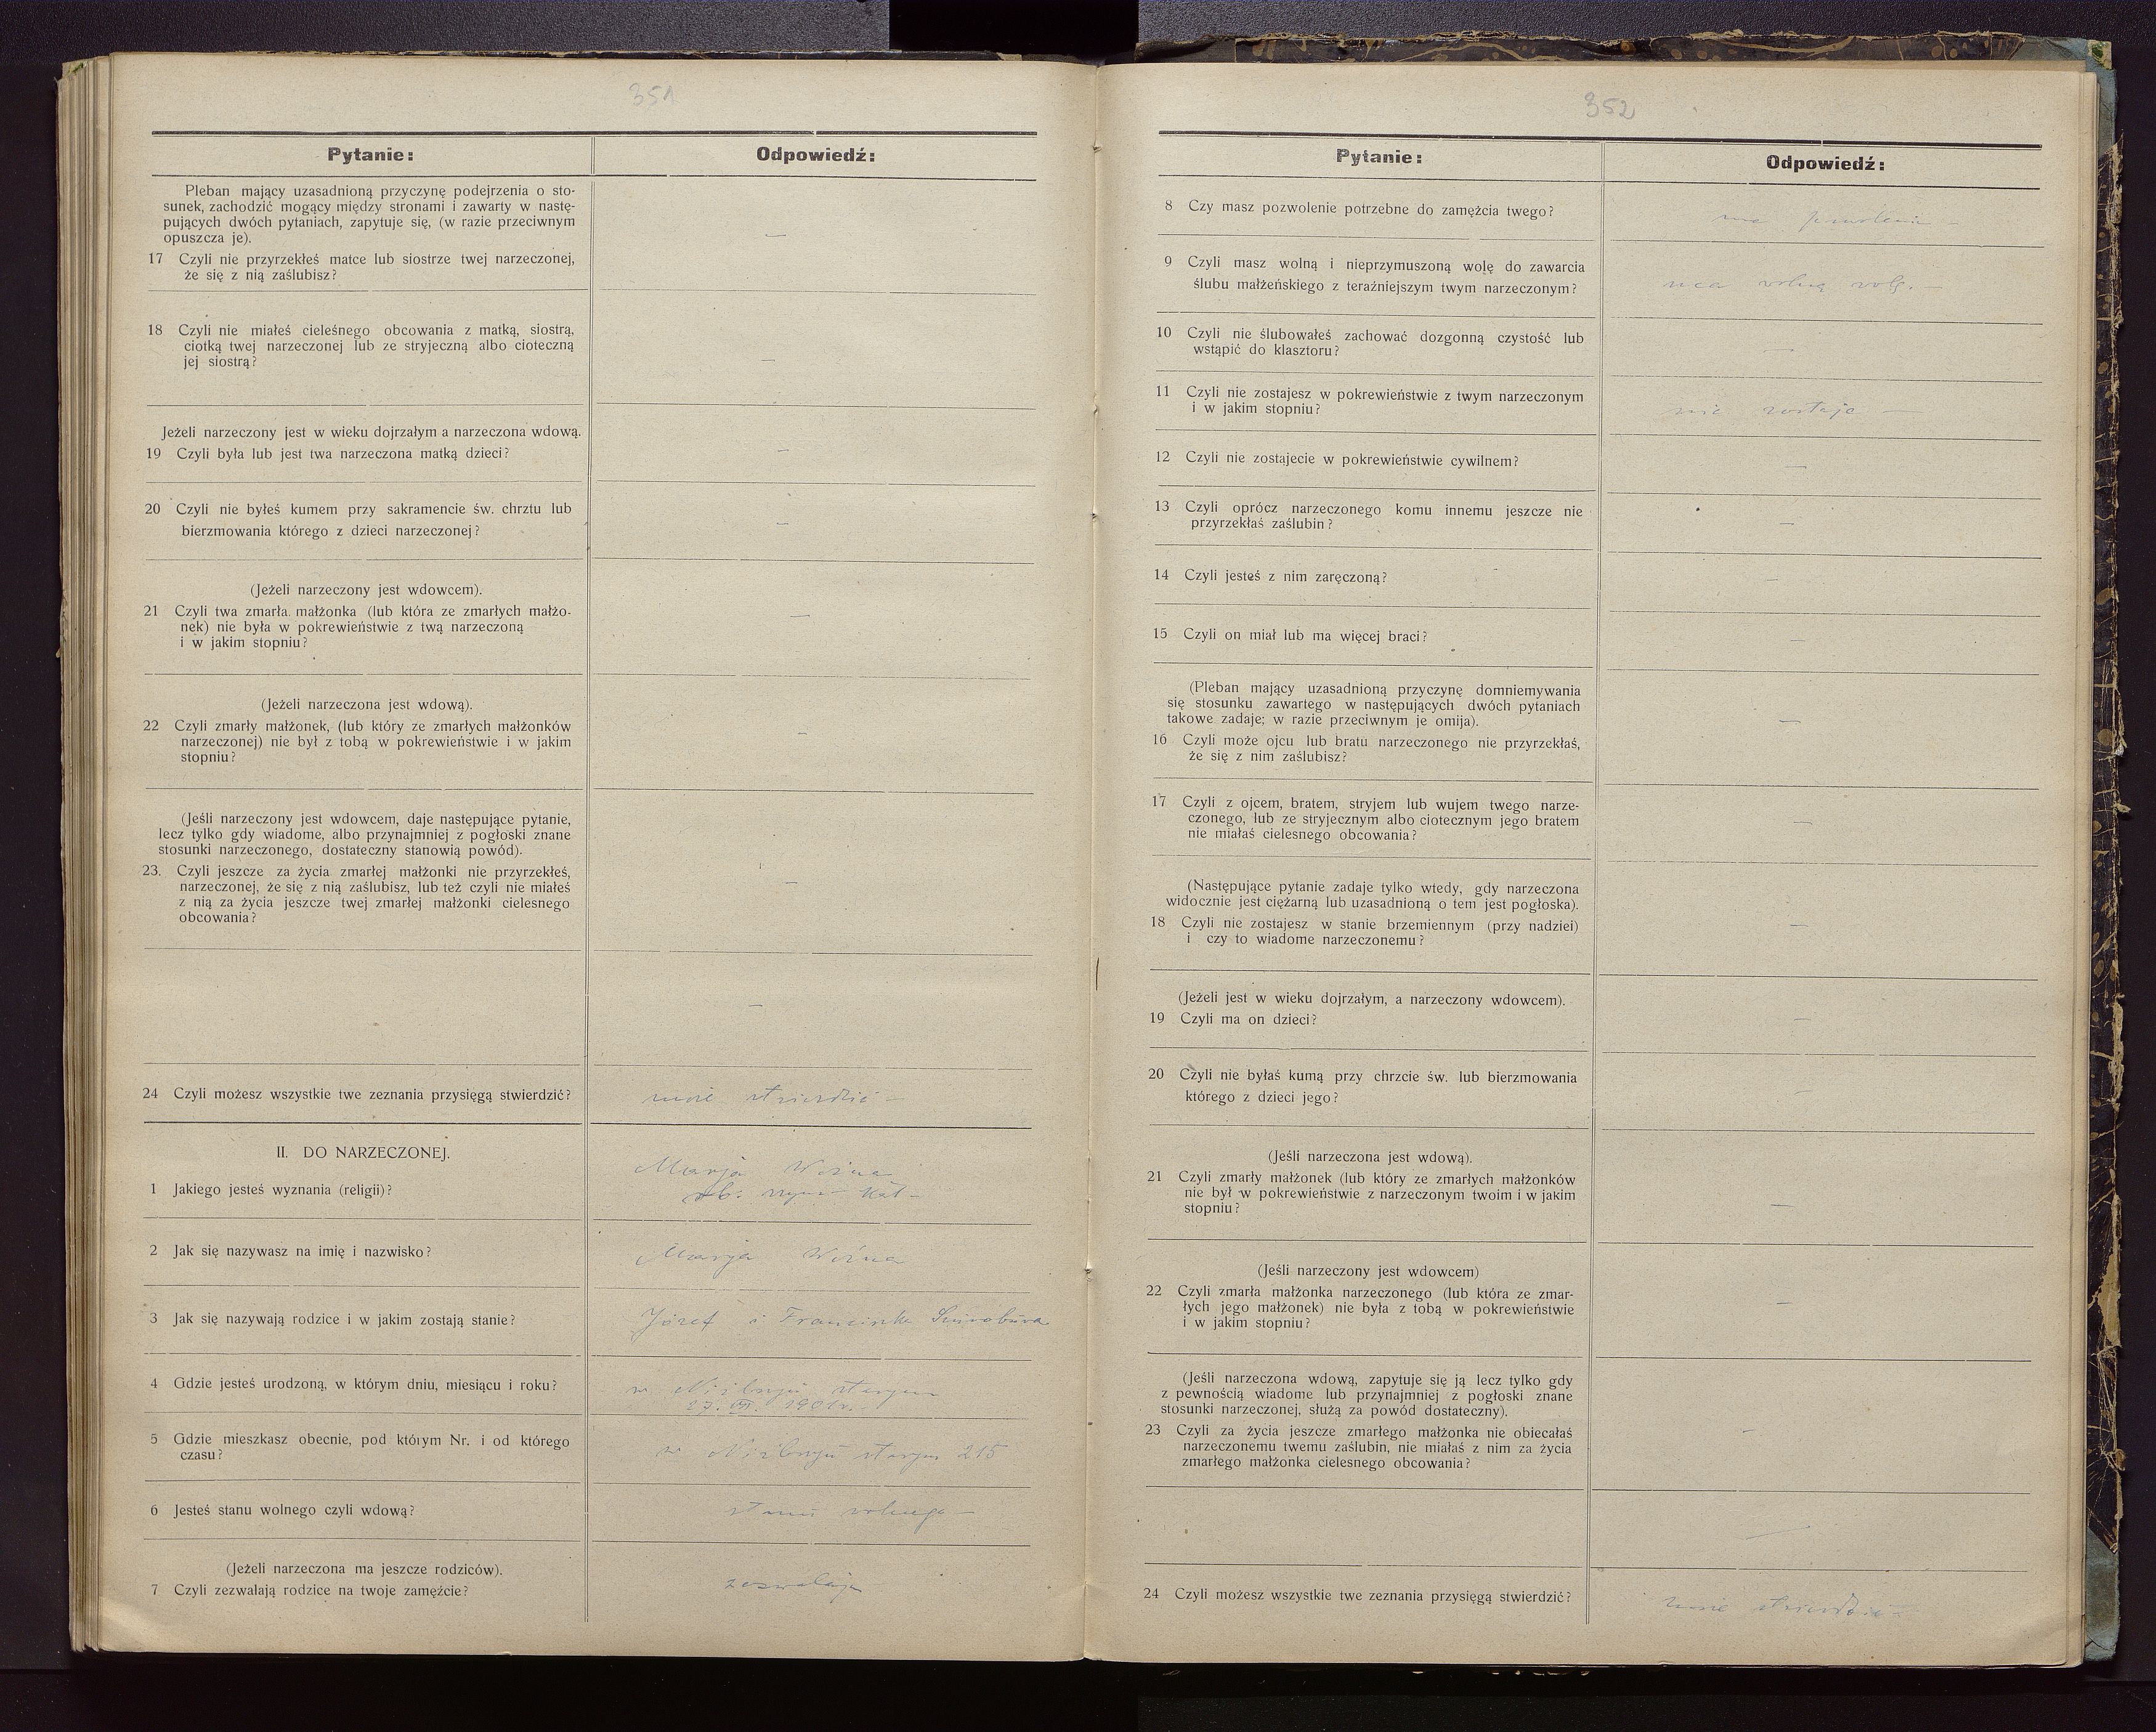 351
Pytanie:
Odpowiedź:
Pleban mający uzasadnioną przyczynę podejrzenia o sto-
sunek, zachodzić mogący między stronami i zawarty w nastę-
pujących dwóch pytaniach, zapytuje się, (w razie przeciwnym
opuszcza je).
—
17 Czyli nie przyrzekłeś matce lub siostrze twej narzeczonej,
że się z nią zaślubisz?
18 Czyli nie miałeś cieleśnego obcowania z matką, siostrą,
ciotką twej narzeczonej lub ze stryjeczną albo cioteczną
jej siostrą?
—
Jeżeli narzeczony jest w wieku dojrzałym a narzeczona wdową.
19 Czyli była lub jest twa narzeczona matką dzieci?
—
20 Czyli nie byłeś kumem przy sakramencie św. chrztu lub
bierzmowania którego z dzieci narzeczonej?
—
(Jeżeli narzeczony jest wdowcem).
21 Czyli twa zmarła małżonka (lub która ze zmarłych małżo-
nek) nie była w pokrewieństwie z twą narzeczoną
i w jakim stopniu?
—
(Jeżeli narzeczona jest wdową).
22 Czyli zmarły małżonek, (lub który ze zmarłych małżonków
narzeczonej) nie był z tobą w pokrewieństwie i w jakim
stopniu?
—
(Jeśli narzeczony jest wdowcem, daje następujące pytanie,
lecz tylko gdy wiadome, albo przynajmniej z pogłoski znane
stosunki narzeczonego, dostateczny stanowią powód).
23. Czyli jeszcze za życia zmarłej małżonki nie przyrzekłeś,
narzeczonej, że się z nią zaślubisz, lub też czyli nie miałeś
z nią za życia jeszcze twej zmarłej małżonki cielesnego
obcowania?
—
—
24 Czyli możesz wszystkie twe zeznania przysięgą stwierdzić?
może stwierdzić —
II. DO NARZECZONEJ.
Marja Woźna
1 Jakiego jesteś wyznania (religii)?
ob: rzym. kat —
2 Jak się nazywasz na imię i nazwisko?
Marja Woźna
3 Jak się nazywają rodzice i w jakim zostają stanie?
Józef i Franciszka
4 Gdzie jesteś urodzoną, w którym dniu, miesiącu i roku?
w Niżbrgu starym
27. VII. 1901 r. —
5 Gdzie mieszkasz obecnie, pod którym Nr. i od którego
czasu?
w Niżbrgu starym 215
6 Jesteś stanu wolnego czyli wdową?
stanu wolnego —
(Jeżeli narzeczona ma jeszcze rodziców).
7 Czyli zezwalają rodzice na twoje zamęźcie?
zezwalają
352
Pytanie:
Odpowiedź:
8 Czy masz pozwolenie potrzebne do zamężcia twego?
ma pozwolenie —
9 Czyli masz wolną i nieprzymuszoną wolę do zawarcia
ślubu małżeńskiego z teraźniejszym twym narzeczonym?
ma wolną wolę. —
10 Czyli nie ślubowałeś zachować dozgonną czystość lub
wstąpić do klasztoru?
—
11 Czyli nie zostajesz w pokrewieństwie z twym narzeczonym
i w jakim stopniu?
nie zostaje —
12 Czyli nie zostajecie w pokrewieństwie cywilnem?
—
13 Czyli oprócz narzeczonego komu innemu jeszcze nie
przyrzekłaś zaślubin?
—
14 Czyli jesteś z nim zaręczoną?
—
15 Czyli on miał lub ma więcej braci?
—
(Pleban mający uzasadnioną przyczynę domniemywania
się stosunku zawartego w następujących dwóch pytaniach
takowe zadaje; w razie przeciwnym je omija).
—
16 Czyli może ojcu lub bratu narzeczonego nie przyrzekłaś,
że się z nim zaślubisz?
17 Czyli z ojcem, bratem, stryjem lub wujem twego narze-
czonego, lub ze stryjecznym albo ciotecznym jego bratem
nie miałaś cielesnego obcowania?
—
(Następujące pytanie zadaje tylko wtedy, gdy narzeczona
widocznie jest ciężarną lub uzasadnioną o tem jest pogłoska).
18 Czyli nie zostajesz w stanie brzemiennym (przy nadziei)
i czy to wiadome narzeczonemu?
—
(Jeżeli jest w wieku dojrzałym, a narzeczony wdowcem).
19 Czyli ma on dzieci?
—
20 Czyli nie byłaś kumą przy chrzcie św. lub bierzmowania
którego z dzieci jego?
—
(Jeśli narzeczona jest wdową).
21 Czyli zmarły małżonek (lub który ze zmarłych małżonków
nie był w pokrewieństwie z narzeczonym twoim i w jakim
stopniu?
—
(Jeśli narzeczony jest wdowcem)
22 Czyli zmarła małżonka narzeczonego (lub która ze zmar-
łych jego małżonek) nie była z tobą w pokrewieństwie
i w jakim stopniu?
—
(Jeśli narzeczona wdową, zapytuje się ją lecz tylko gdy
z pewnością wiadome lub przynajmniej z pogłoski znane
stosunki narzeczonej, służą za powód dostateczny).
23 Czyli za życia jeszcze zmarłego małżonka nie obiecałaś
narzeczonemu twemu zaślubin, nie miałaś z nim za życia
zmarłego małżonka cielesnego obcowania?
—
—
24 Czyli możesz wszystkie twe zeznania przysięgą stwierdzić?
może stwierdzić —